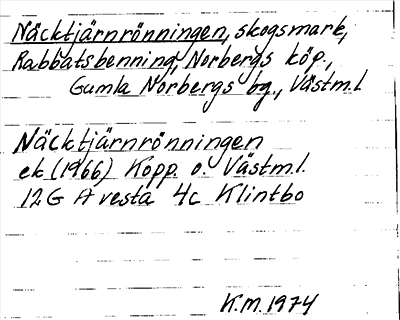 Näcktjärnrönningen, skogsmark,
Rabbatsbenning, Norbergs köp.,
Gumla Norbergs bg., Västm.l
Näcktjärnrönningen
ek (1966) Kopp. o. Västm.l.
12G Avesta 4c Klintbo
K.M. 1974